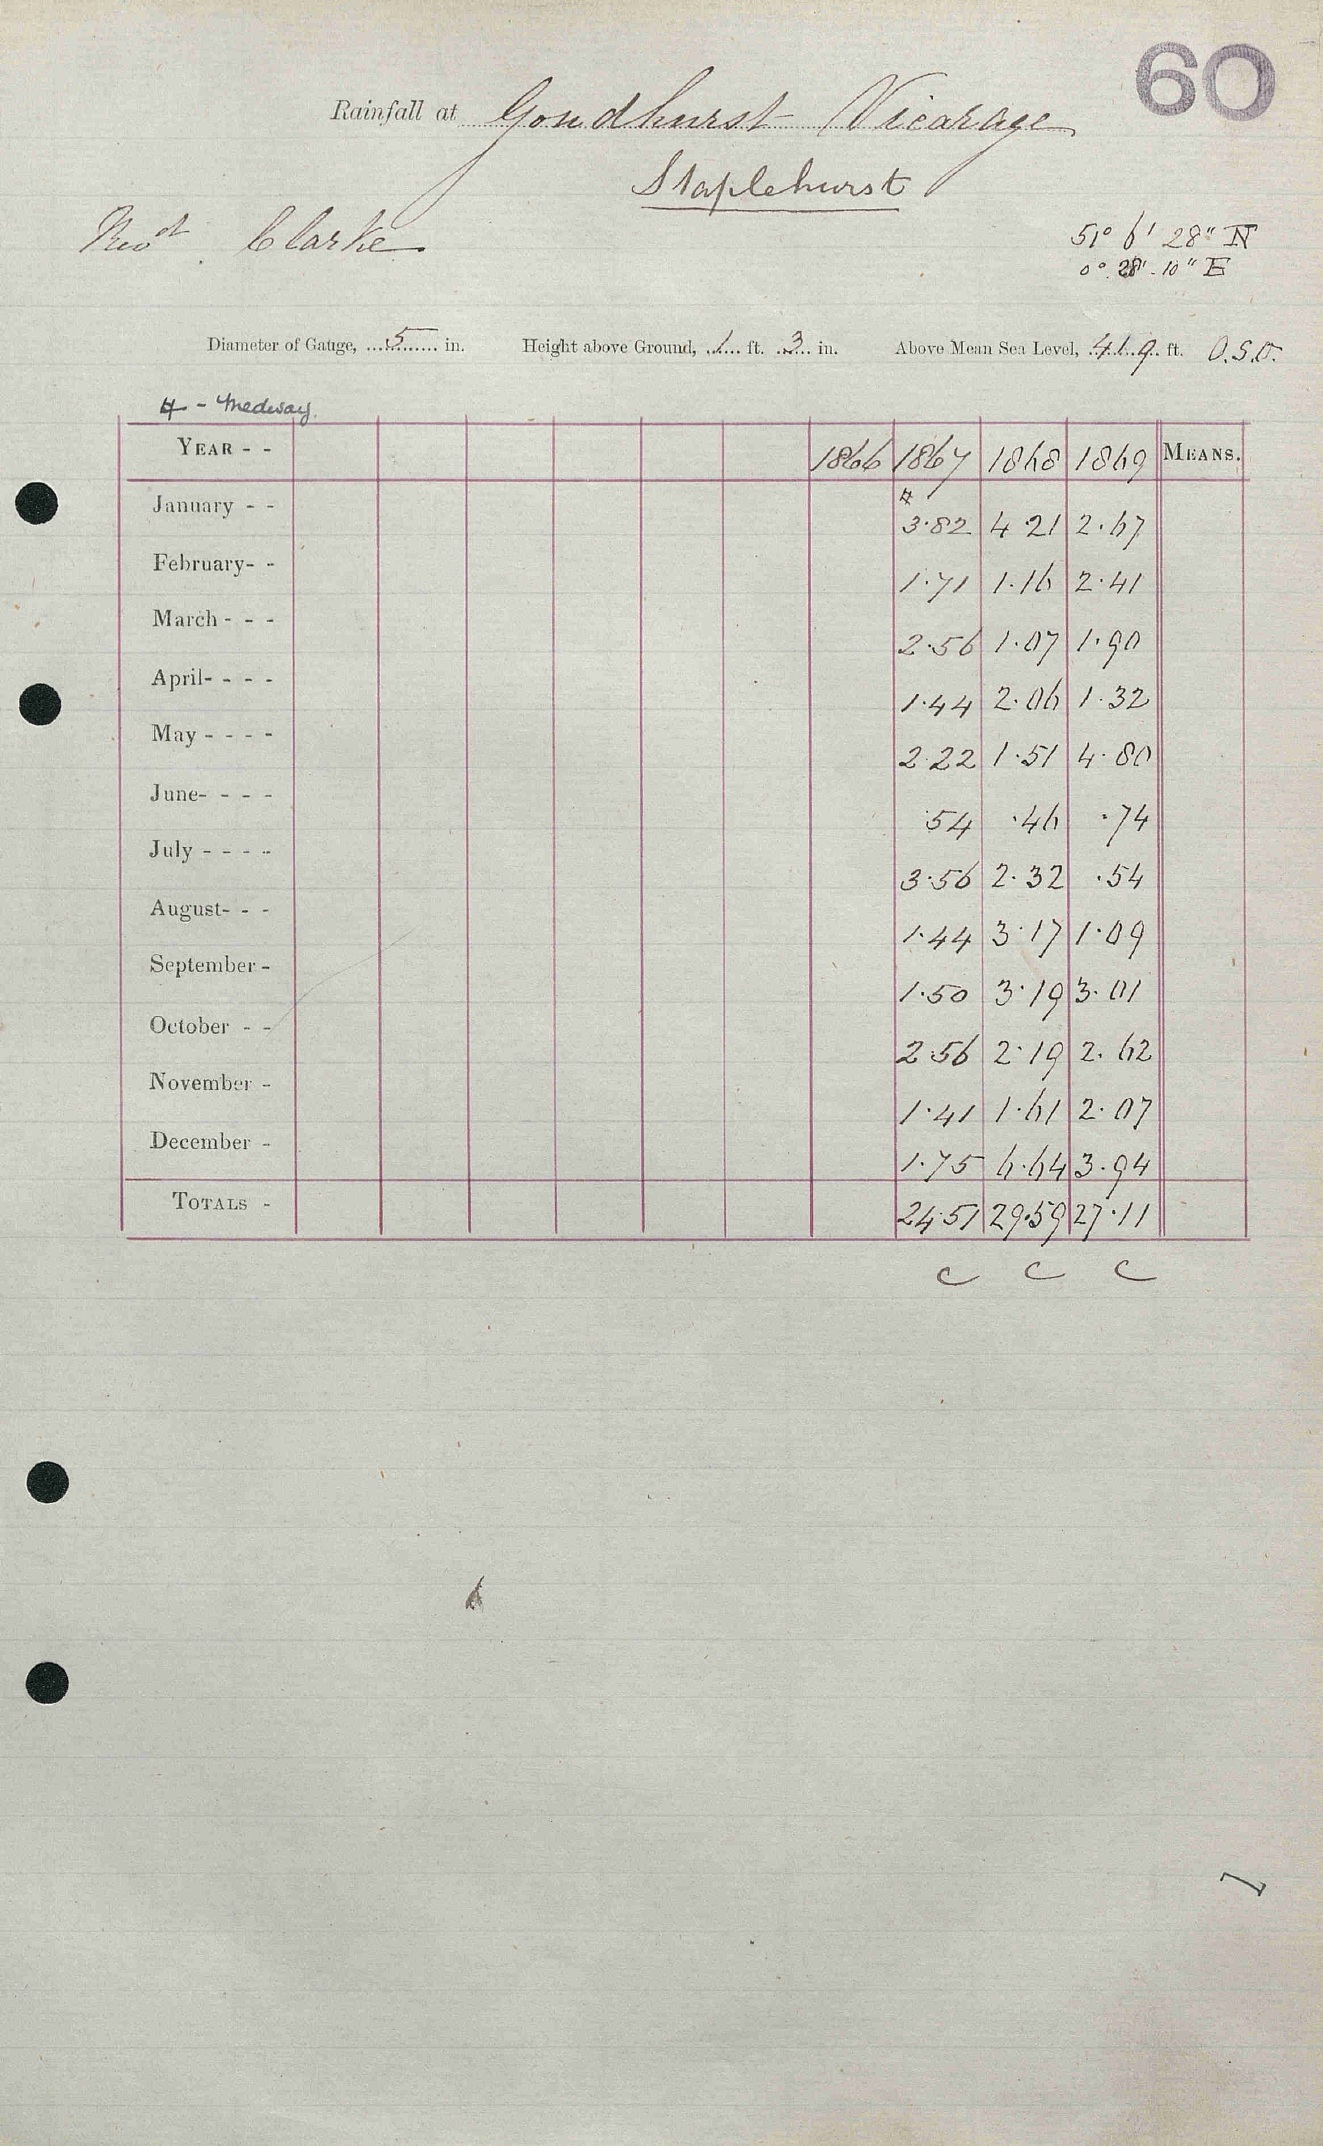 60
Rainfall at Goudhurst Vicarage
Staplehurst
Clarke
51° 6' 28" N
0° 28' 10" E
Diameter of Gauge, 5 in. Height above Ground, 1 ft. 3 in. Above Mean Sea Level, 419 ft. O.S.D.
# - Medway.
YEAR - - 1866 1867 1868 1869 MEANS.
January - - # 3.82 4.21 2.67
February- - 1.71 1.16 2.41
March - - - 2.56 1.07 1.90
April- - - - 1.44 2.06 1.32
May - - - - 2.22 1.51 4.80
June- - - - .54 .46 .74
July - - - - 3.56 2.32 .54
August- - - 1.44 3.17 1.09
September - 1.50 3.19 3.01
October - - 2.56 2.19 2.62
November - 1.41 1.61 2.07
December - 1.75 6.64 3.94
TOTALS - 24.51 29.59 27.11
C C C